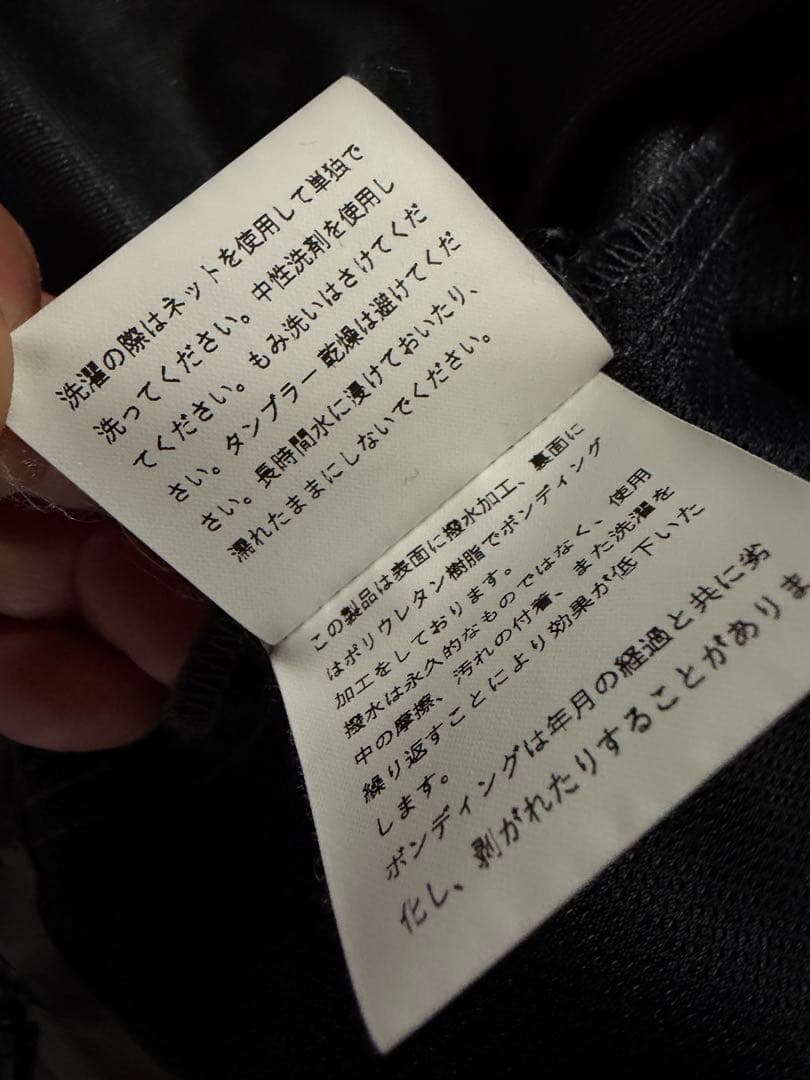 洗濯の際はネットを使用して単独で
洗ってください。中性洗剤を使用し
てください。もみ洗いはさけてくだ
さい。タンブラー乾燥は避けてくだ
さい。長時間水に浸けておいたり、
濡れたままにしないでください。
この製品は表面に撥水加工、裏面に
はポリウレタン樹脂でボンディング
加工をしております。
撥水は永久的なものではなく、使用
中の摩擦、汚れの付着、また洗濯を
繰り返すことにより効果が低下いた
します。
ボンディングは年月の経過と共に劣
化し、剥がれたりすることがありま